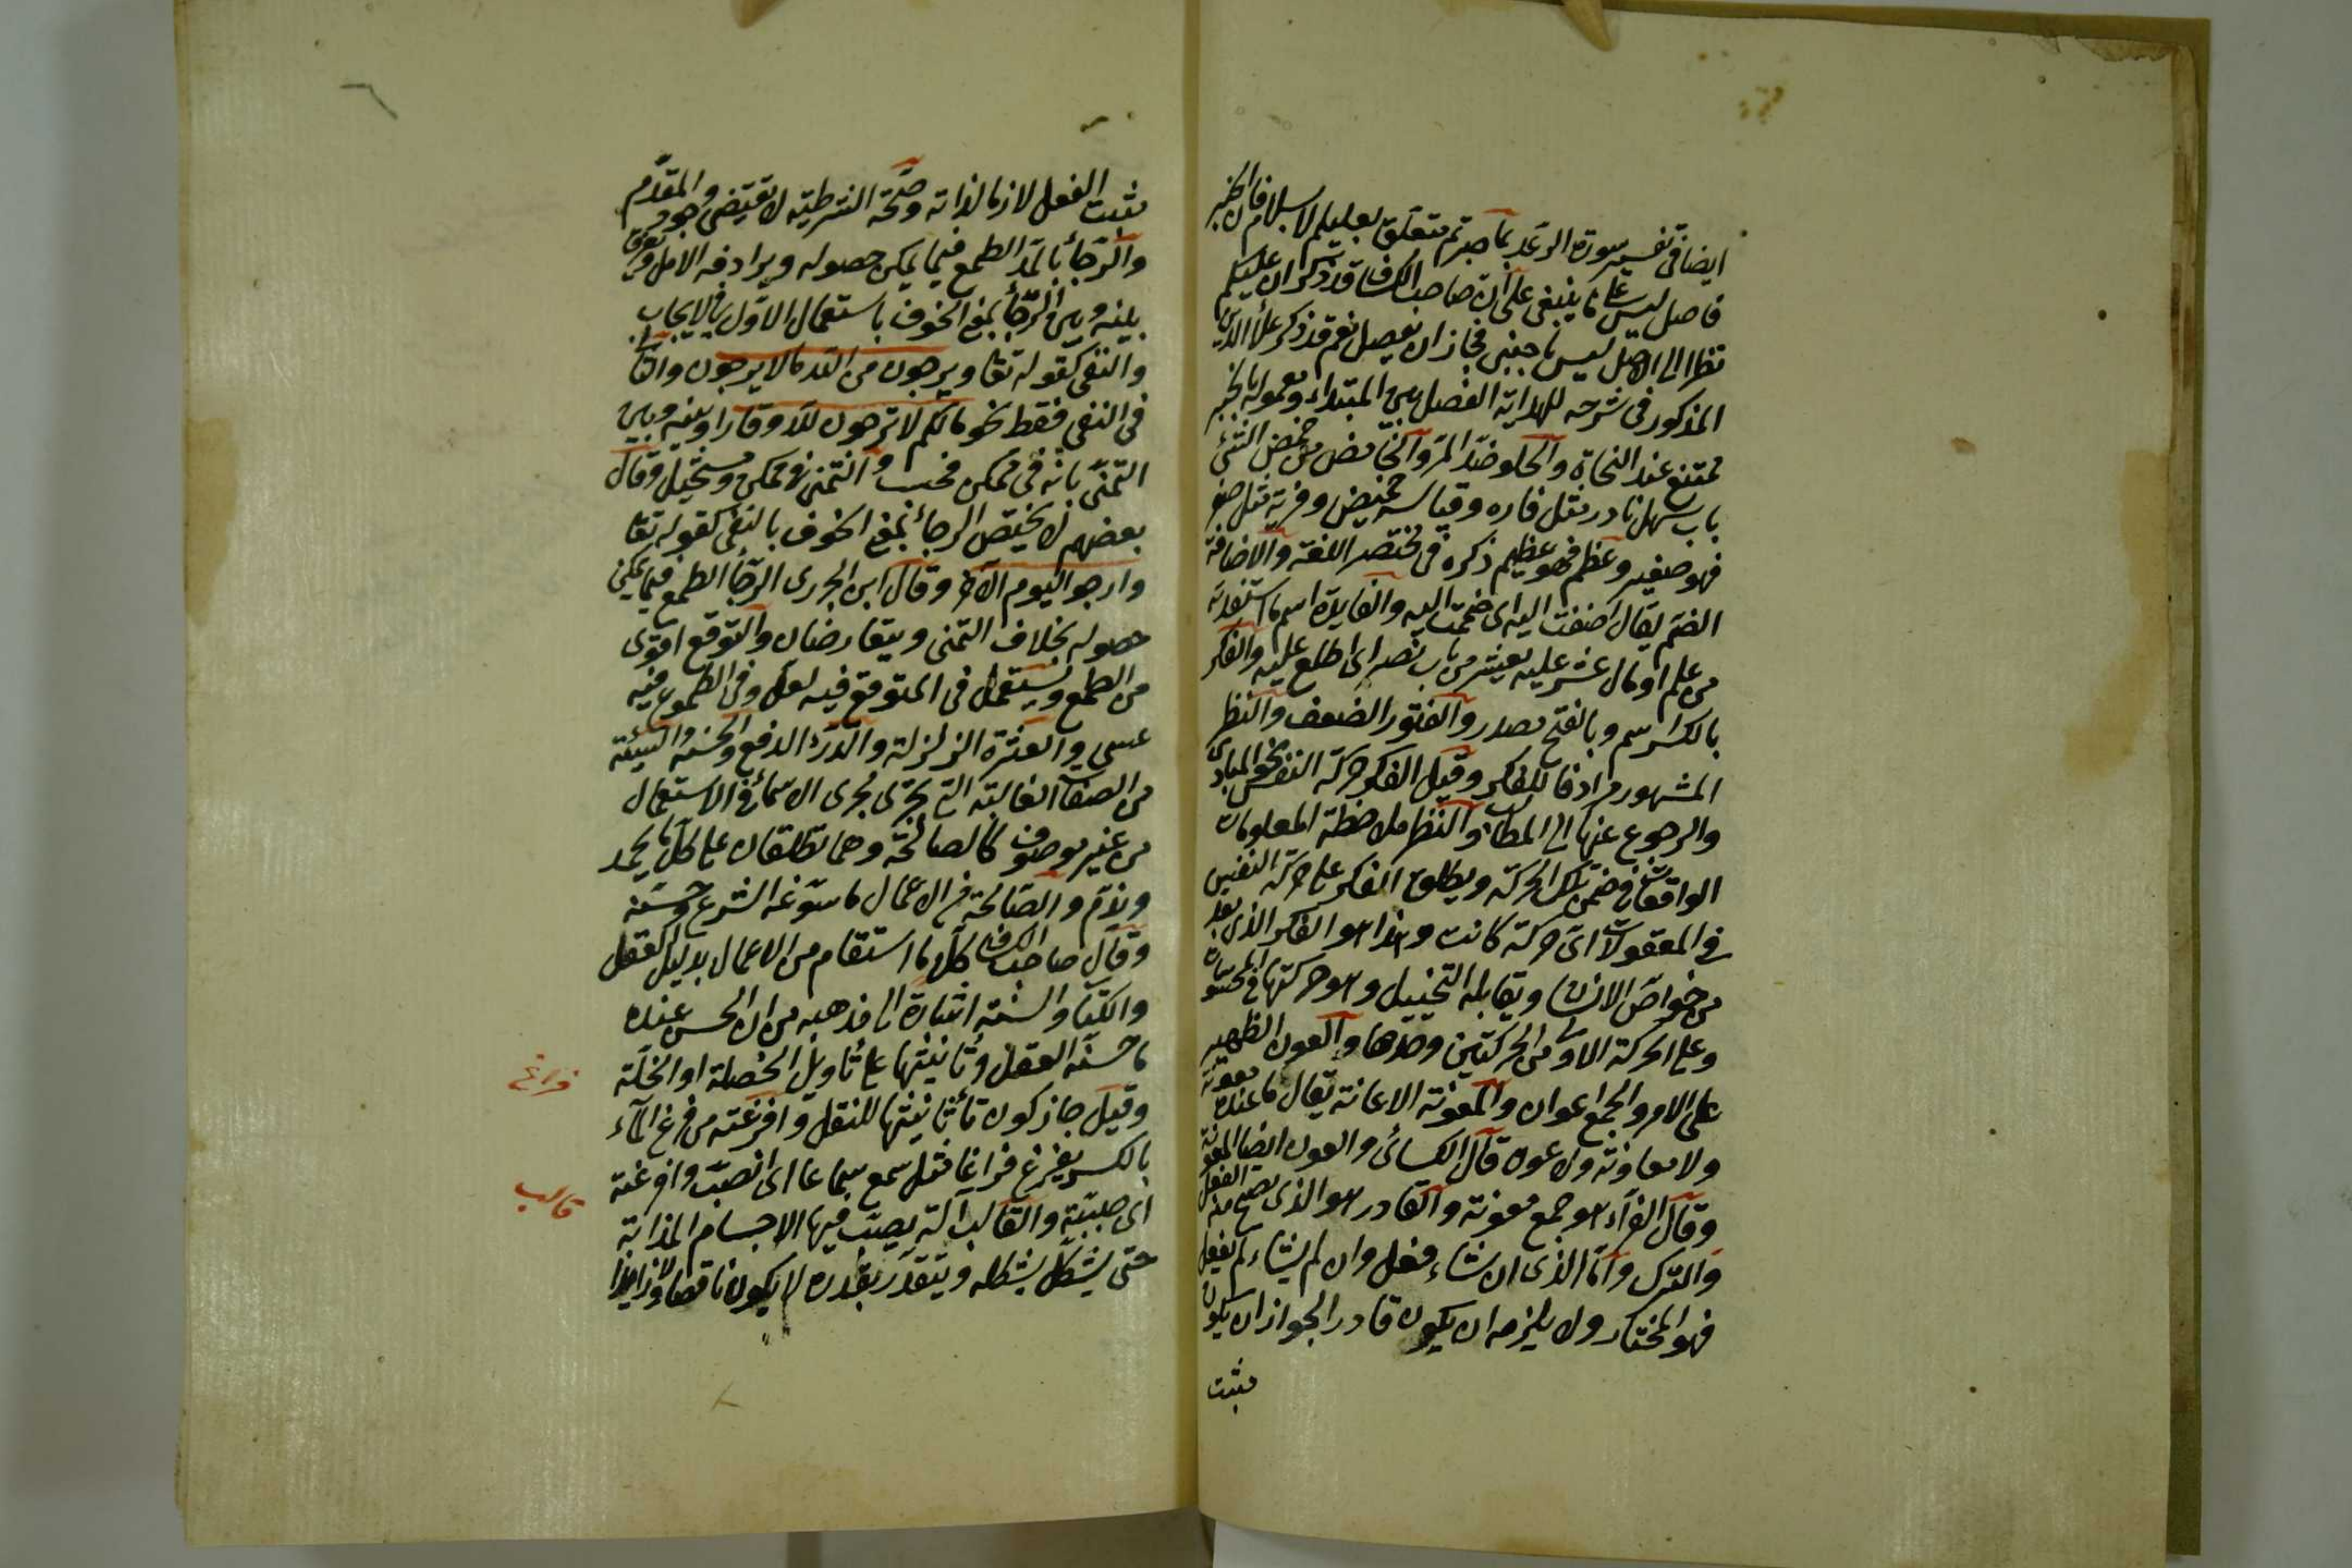 ايضا في تفسير سورة الرعد بما صبرتم متعلق بعليكم لا بسلام فان الخبر
فاصل ليس على ما ينبغي على ان صاحب الكشاف قد ذكر ان عليكم
نظرا الى الاصل ليس باجنبي فجاز ان يفصل نعم قد ذكر علاء الدين
المذكور في شرحه للهداية الفصل بين المبتداء ومعموله بالخبر
ممتنع عند النحاة والحلو ضد المر والحامض من حمض الشئ
باب سهل نادر مثل فاره وقياسه حميض وفريه مثل صغر
فهو صغير وعظم فهو عظيم ذكره في مختصر اللغة والاضافة
الضم يقال اضفت اليه اي ضممت اليه والفايدة اسم ما استفدته
من علم او مال عثر عليه يعثر من باب نصر اي اطلع عليه والفكر
بالكسر اسم وبالفتح مصدر والفتور الضعف والنظر
المشهور مرادفا للفكر وقيل الفكر حركة النفس نحو المبادى
والرجوع عنها الى المطالب والنظر ملاحظة المعلومات
الواقعة في ضمن تلك الحركة ويطلق الفكر على حركة النفس
في المعقولات اي حركة كانت وهذا هو الفكر الذي يعد
من خواص الانسان ويقابله التخييل وهو حركتها في المحسوسات
وعلى الحركة الاولى من الحركتين وحدها والعون الظهير
على الامر والجمع اعوان والمعونة الاعانة يقال ما عنده معونة
ولا معاونة ولا عون قال الكسائي والعون ايضا المعونة
وقال الفراء هو جمع معونة والقادر هو الذي يصح منه الفعل
والترك واما الذي ان شاء فعل وان لم يشاء لم يفعل
فهو المختار ولا يلزمه ان يكون قادرا لجواز ان يكون
مثبت
مثبت الفعل لازما لذاته وصحة الشرطية لا تقتضي وجود المقدم
والرجاء بالمد الطمع فيما يمكن حصوله ويرادفه الامل وفرق
بينه وبين الرجاء بمعنى الخوف باستعمال الاول في الايجاب
والنفي كقوله تعا ويرجون من الله ما لا يرجون والثاني
في النفي فقط نحو مالكم لا ترجون لله وقارا وبينه وبين
التمني بانه في ممكن فحسب والتمني في ممكن ومستحيل وقال
بعضهم لا يختص الرجاء بمعنى الخوف بالنفي كقوله تعا
وارجوا اليوم الآخر وقال ابن الجزري الرجاء الطمع فيما يمكن
حصوله بخلاف التمني ويتعارضان والتوقع اقوى
من الطمع ويستعمل في المتوقع فيه لعل وفي المطموع فيه
عسى والعثرة الزلزلة والدرء الدفع والحسنة والسيئة
من الصفات الغالبة التي تجرى مجرى الاسماء في الاستعمال
من غير موصوف كالصالحة وهما تطلقان على كل ما يحمد
ويذم والصالحة من الاعمال ما سوغه الشرع وحسنه
وقال صاحب الكشاف كل ما استقام من الاعمال بدليل العقل
والكتاب والسنة اشارة الى مذهبه من ان الحسن عنده
ما حسنه العقل وتانيثها على تاويل الخصلة او الخلة
وقيل جاز كون تاء تانيثها للنقل وافرغته من فرغ الماء
فراغ
بالكسر يفرغ فراغا مثل سمع سماعا اي انصب وافرغته
اي صببته والقالب آلة يصب فيها الاجسام المذابة
قالب
حتى يشكل بشكله ويتقدر بقدره لا يكون ناقصا ولا زايدا